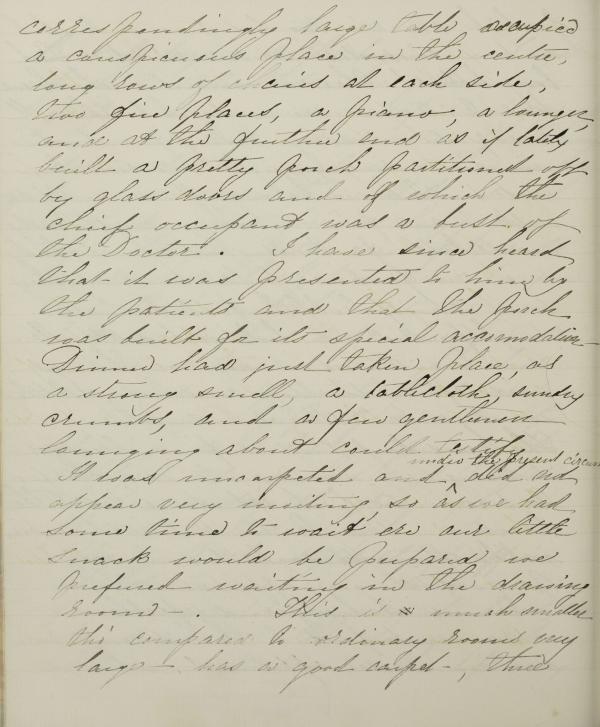 correspondingly large table occupied
a conspicuous place in the centre,
long rows of chairs at each side,
two fire places, a piano, a lounge,
and at the further end as if lately
built a pretty porch partitioned off
by glass doors and of which the
chief occupant was a bust of
the Doctor. I have since heard
that it was presented to him by
the patients and that the porch
was built for its special accomodation
Dinner had just taken place, as
a strong smell, a tablecloth, sundry
crumbs, and a few gentlemen
lounging about could testify
under the present circum
It was uncarpeted and ^ did not
appear very inviting, so as we had
some time to wait ere our little
snack would be prepared we
prefered waiting in the drawing
room -. This is much smaller
tho' compared to ordinary rooms very
large - has a good carpet -, three